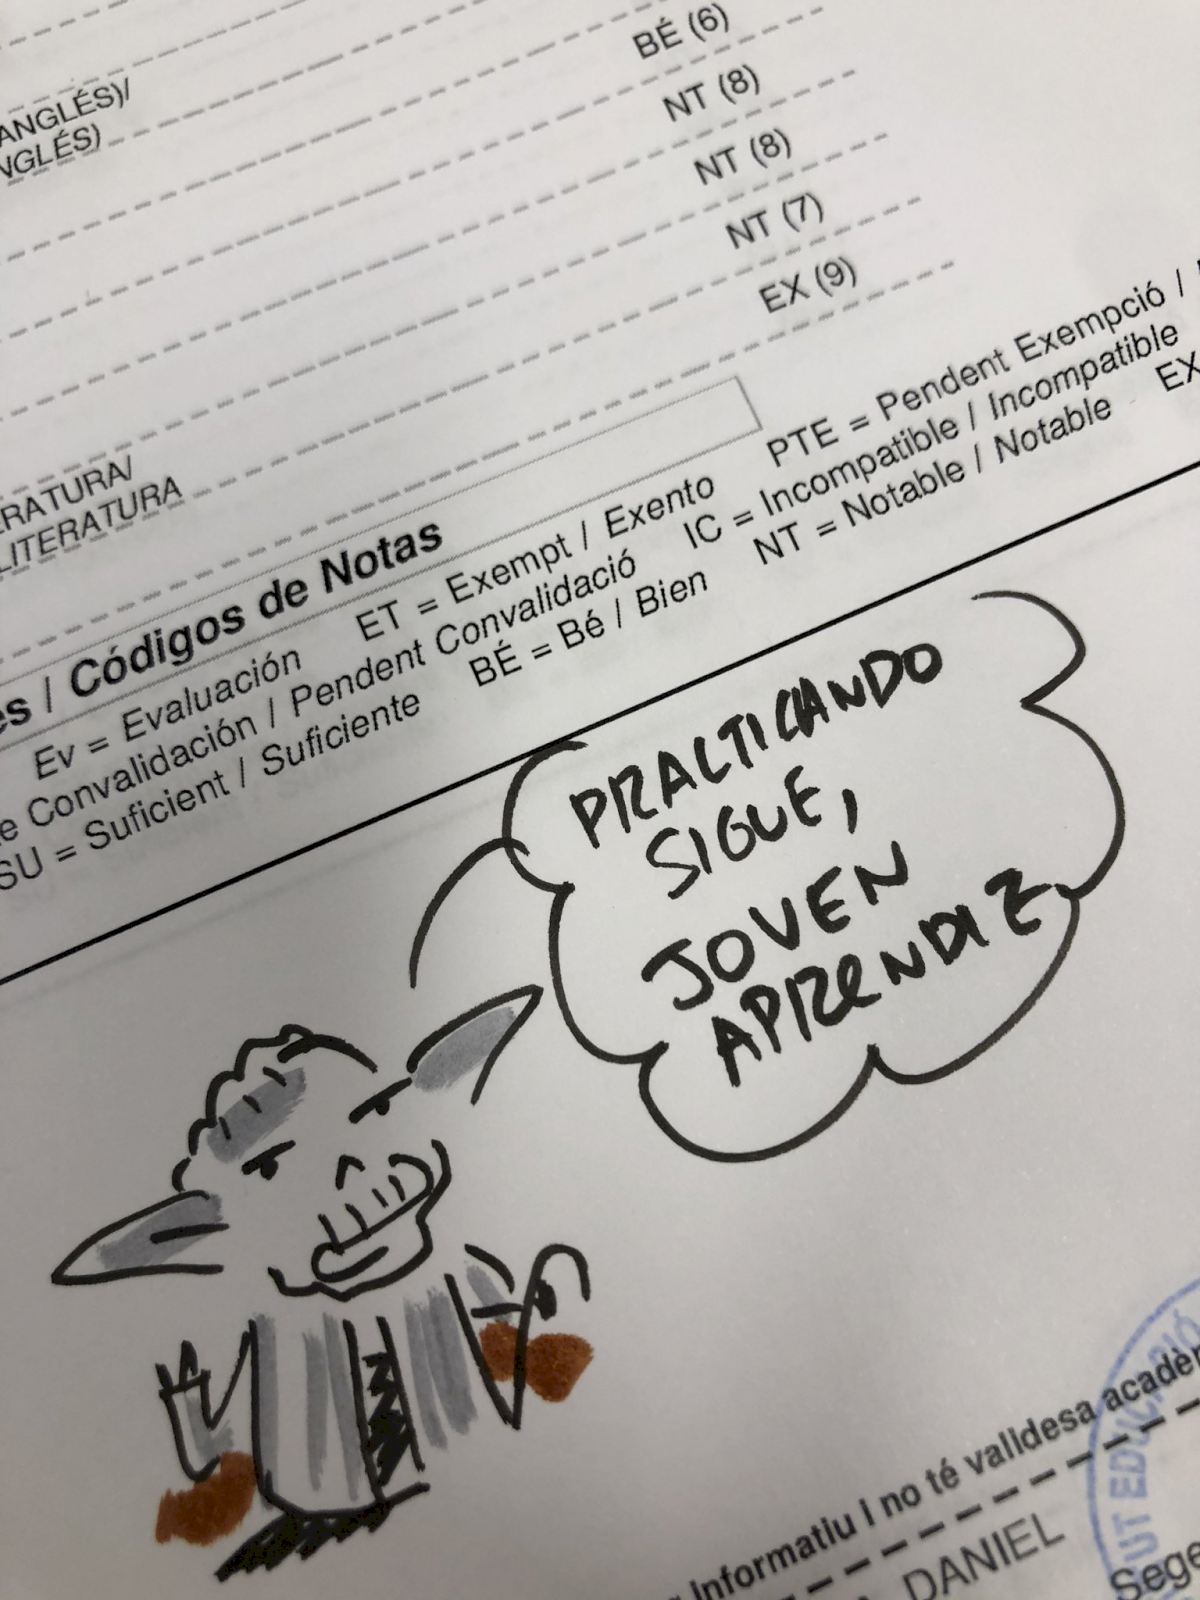 ANGLÉS)/
NGLÉS)
BÉ (6)
NT (8)
NT (8)
NT (7)
EX (9)
ERATURA/
LITERATURA
es / Códigos de Notas
Ev = Evaluación ET = Exempt / Exento PTE = Pendent Exempció /
e Convalidación / Pendent Convalidació IC = Incompatible / Incompatible
SU = Suficient / Suficiente BÉ = Bé / Bien NT = Notable / Notable EX
PRACTICANDO
SIGUE,
JOVEN
APRENDIZ
Informatiu I no té validesa acadèm
DANIEL
UT EDUCACIÓ
Sege